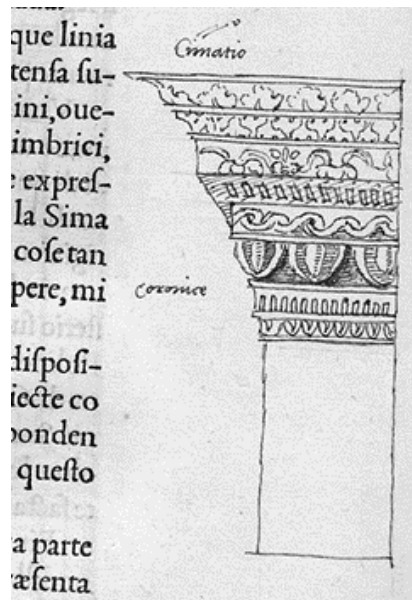 que linia
tensa su-
ini, oue-
imbrici,
expres-
la Sima
cose tan
pere, mi
disposi-
iecte co
ponden
questo
a parte
æsenta
Cimatio
Coronice